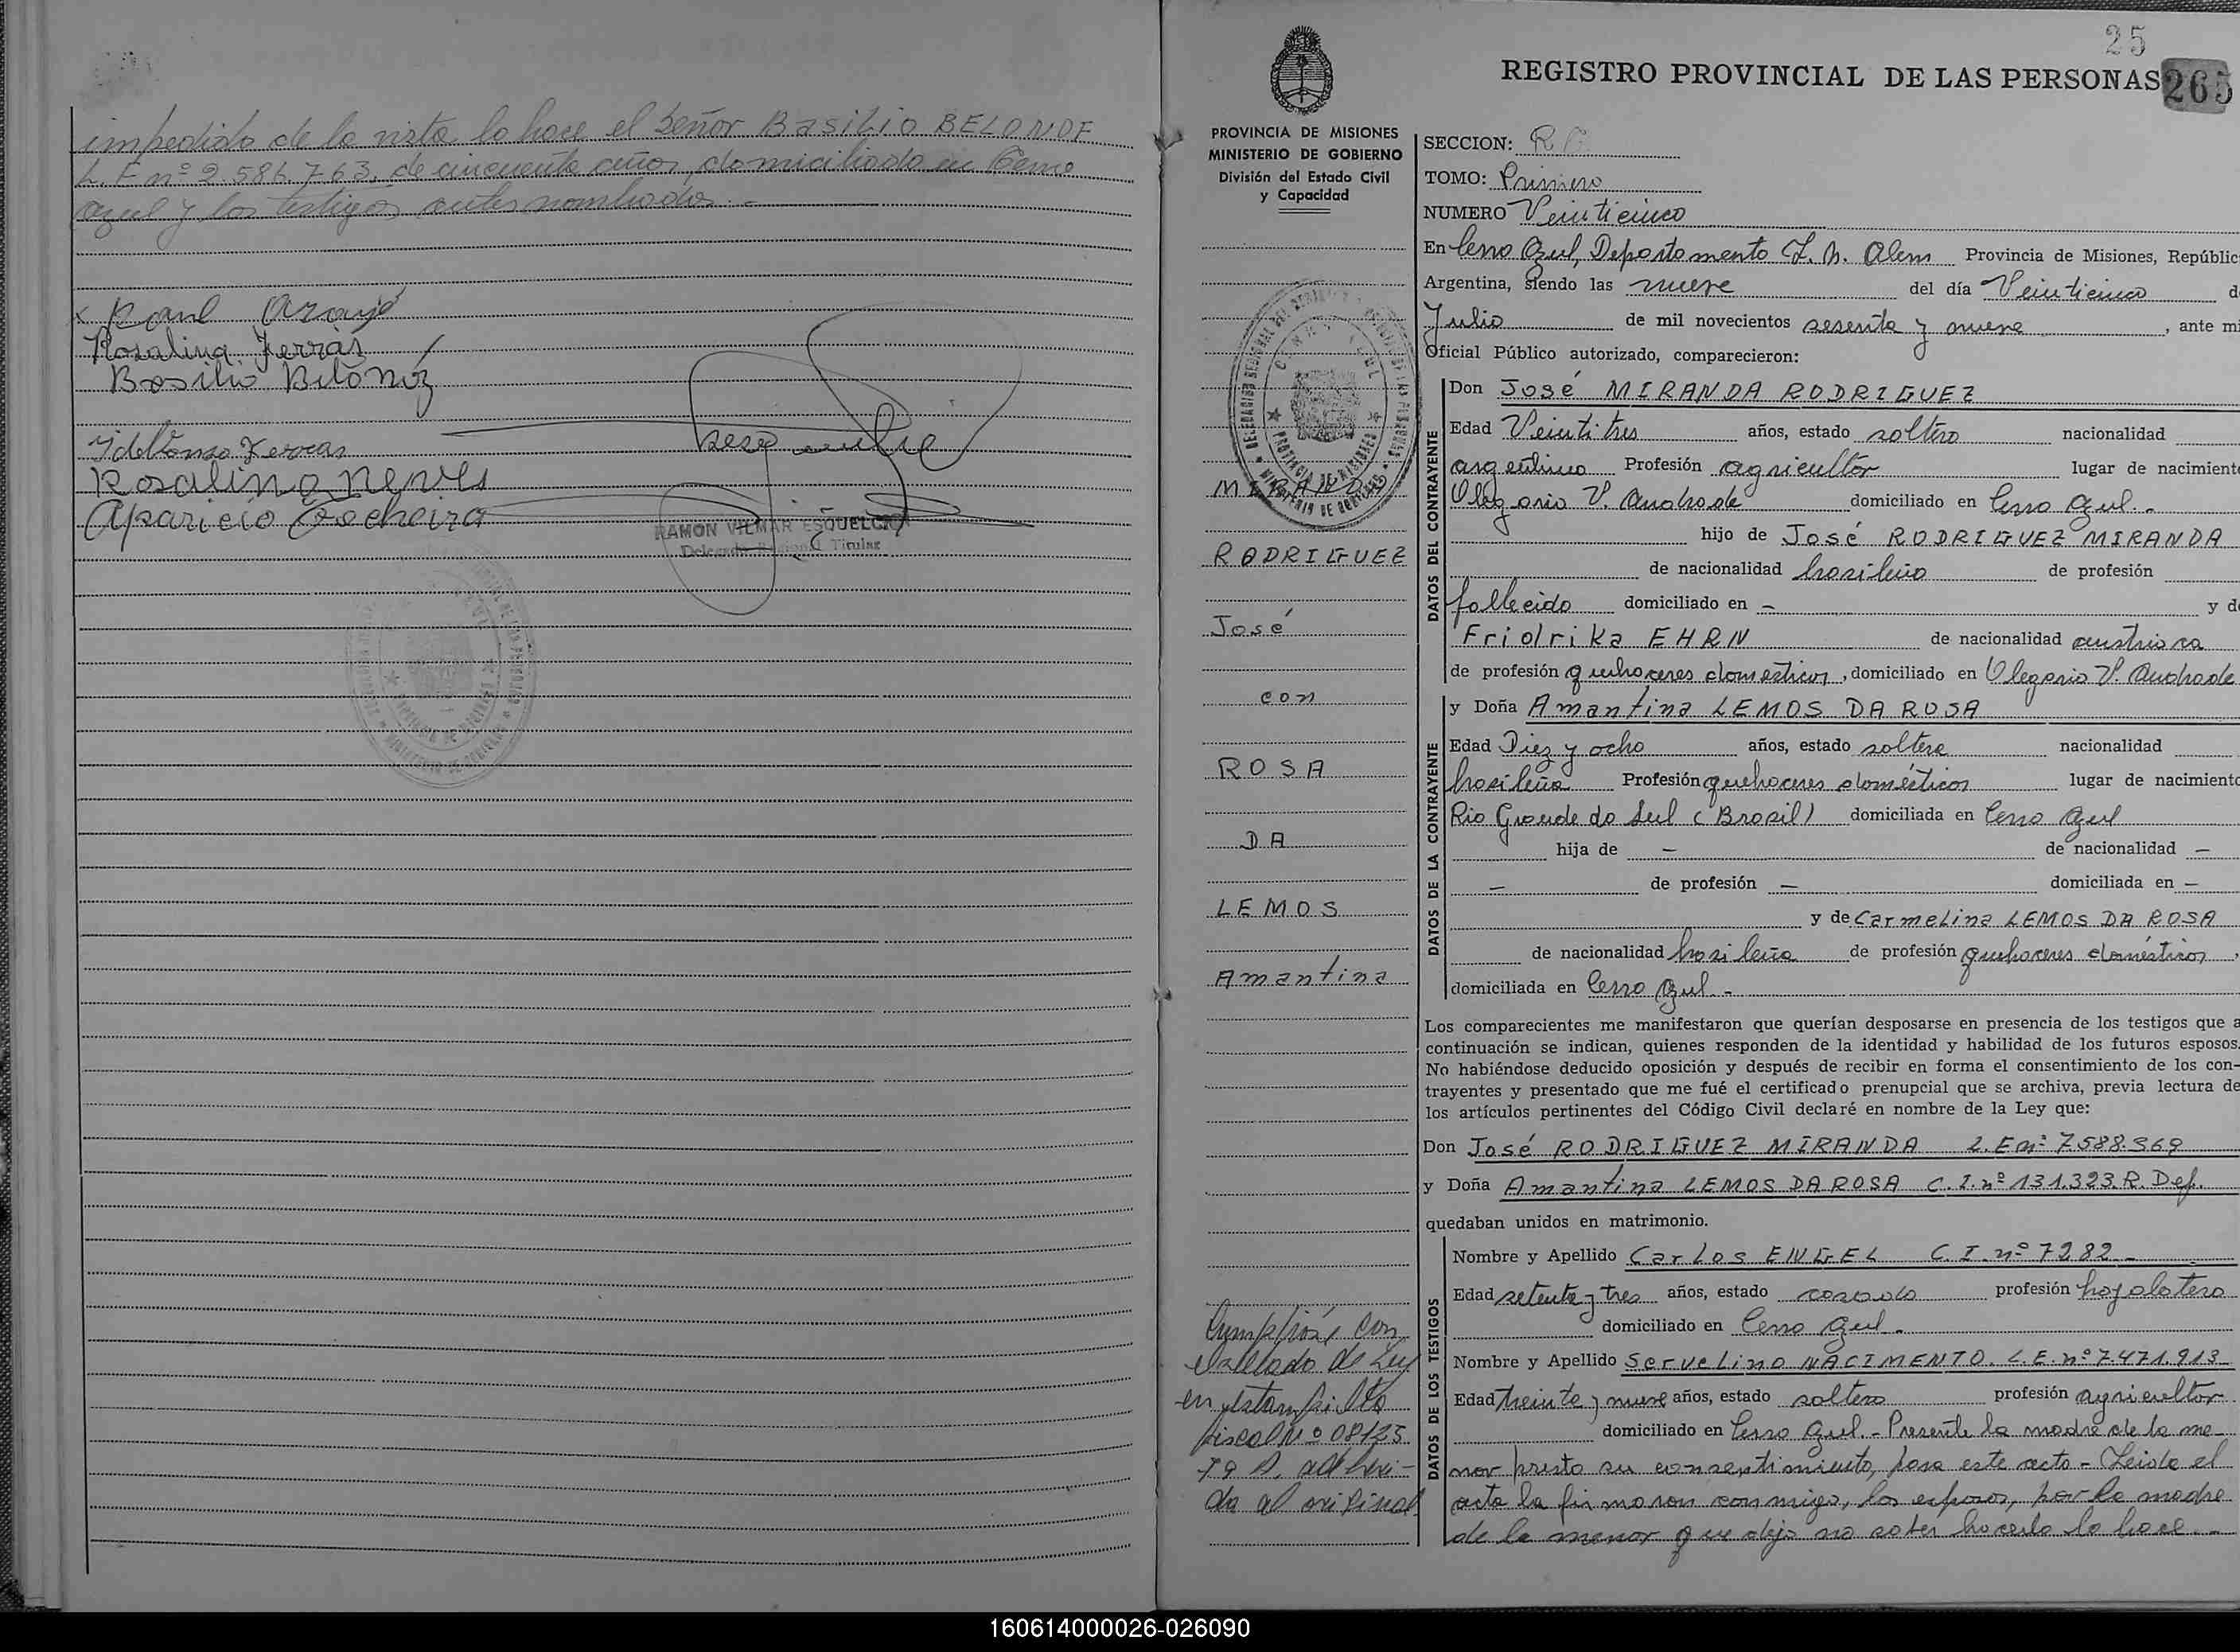 impedido de la vista lo hace el Señor Basilio BELONOF
L. E nº 2.586.763, de cincuenta años, domiciliado en Cerro
Azul y los testigos antes nombrados. -
x Raul Araujo
Rosalina Ferras
Basilio Belonoz
Ildefonso Ferras
Rosalina neves
Aparicio
RAMON VILMAR ESQUELCA
Delegado Regional Titular
25
REGISTRO PROVINCIAL DE LAS PERSONAS 265
PROVINCIA DE MISIONES
MINISTERIO DE GOBIERNO
División del Estado Civil
y Capacidad
MIRANDA
RODRIGUEZ
José
con
ROSA
DA
LEMOS
Amantina
Cumplióse con
el sellado de Ley
en estampilla
fiscal Nº 08125
adheri-
da al original
SECCION: R
TOMO: Primero
NUMERO Veinticinco
En Cerro Azul, Departamento L. N. Alem Provincia de Misiones, Repúblic
Argentina, siendo las nueve del día Veinticinco d
Julio de mil novecientos sesenta y nueve, ante mi
Oficial Público autorizado, comparecieron:
DATOS DEL CONTRAYENTE
Don José MIRANDA RODRIGUEZ
Edad Veintitres años, estado soltero nacionalidad
argentino Profesión agricultor lugar de nacimiento
Olegario V. Andrade domiciliado en Cerro Azul. -
hijo de José RODRIGUEZ MIRANDA
de nacionalidad brasileño de profesión
fallecido domiciliado en - y de
Fridrika EHRN de nacionalidad austriaca
de profesión quehaceres domésticos, domiciliado en Olegario V. Andrade
DATOS DE LA CONTRAYENTE
y Doña Amantina LEMOS DA ROSA
Edad Diez y ocho años, estado soltera nacionalidad
brasileña Profesión quehaceres domésticos lugar de nacimiento
Rio Grande do Sul (Brasil) domiciliada en Cerro Azul
hija de - de nacionalidad -
- de profesión - domiciliada en -
y de Carmelina LEMOS DA ROSA
de nacionalidad brasileña de profesión quehaceres domésticos,
domiciliada en Cerro Azul. -
Los comparecientes me manifestaron que querían desposarse en presencia de los testigos que a
continuación se indican, quienes responden de la identidad y habilidad de los futuros esposos.
No habiéndose deducido oposición y después de recibir en forma el consentimiento de los con-
trayentes y presentado que me fué el certificado prenupcial que se archiva, previa lectura de
los artículos pertinentes del Código Civil declaré en nombre de la Ley que:
Don José RODRIGUEZ MIRANDA L.E nº 7.588.369
y Doña Amantina LEMOS DA ROSA C.I. nº 131.323. R. Def.
quedaban unidos en matrimonio.
DATOS DE LOS TESTIGOS
Nombre y Apellido Carlos ENGEL C I. nº 7282 -
Edad setenta y tres años, estado casado profesión hojalatero
domiciliado en Cerro Azul. -
Nombre y Apellido Servelino NACIMENTO. L.E. nº 7.471.913
Edad treinta y nueve años, estado soltero profesión agricultor
domiciliado en Cerro Azul. - Presente la madre de la me-
nor presta su consentimiento, para este acto - Leida el
acta la firmaron conmigo, los esposos, por la madre
de la menor que dijo no saber hacerlo lo hace. -
160614000026-026090